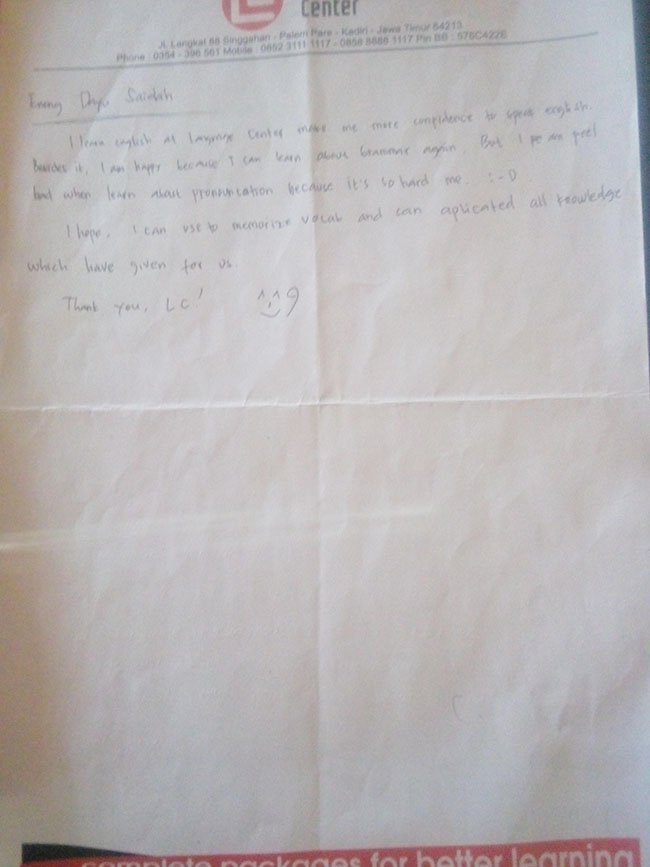 Center
Jl. Langkat 88 Singgahan - Palem Pare - Kediri - Jawa Timur 64213
Phone : 0354 - 396 561 Mobile : 0852 3111 1117 - 0856 8686 1117 Pin BB : 576C4226
Enny Saidah
I learn english at Language Center make me more confidence to speak english.
Besides it, I am happy because I can learn about Grammar again. But I feel
bad when learn about pronountation because it's so hard me. :-D
I hope, I can use to memorize vocab and can aplicated all knowledge
which have given for us.
Thank you, LC!
complete packages for better learning